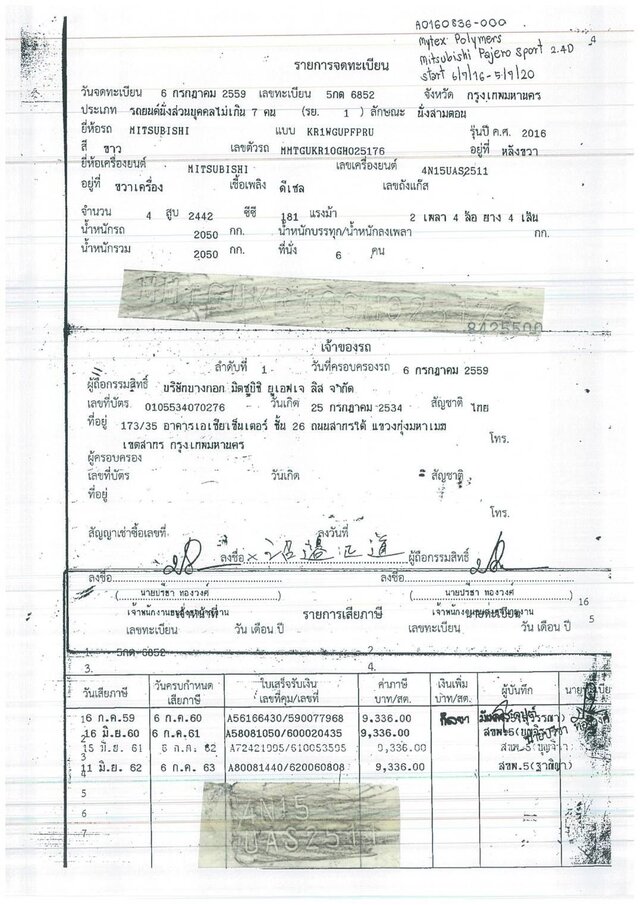 A0160836-000
Mytex Polymers
Mitsubishi Pajero Sport 2.4D
start 6/7/16-5/7/20
รายการจดทะเบียน
วันจดทะเบียน 6 กรกฎาคม 2559 เลขทะเบียน 5กต 6852 จังหวัด กรุงเทพมหานคร
ประเภท รถยนต์นั่งส่วนบุคคลไม่เกิน 7 คน (รย. 1 ) ลักษณะ นั่งสามตอน
ยี่ห้อรถ MITSUBISHI แบบ KR1WGUPFPRU รุ่นปี ค.ศ. 2016
สี ขาว เลขตัวรถ MMTGUKR10GH025176 อยู่ที่ หลังขวา
ยี่ห้อเครื่องยนต์ MITSUBISHI เลขเครื่องยนต์ 4N15UAS2511
อยู่ที่ ขวาเครื่อง เชื้อเพลิง ดีเซล เลขถังแก๊ส
จำนวน 4 สูบ 2442 ซีซี 181 แรงม้า 2 เพลา 4 ล้อ ยาง 4 เส้น
น้ำหนักรถ 2050 กก. น้ำหนักบรรทุก/น้ำหนักลงเพลา กก.
น้ำหนักรวม 2050 กก. ที่นั่ง 6 คน
8425500
เจ้าของรถ
ลำดับที่ 1 วันที่ครอบครองรถ 6 กรกฎาคม 2559
ผู้ถือกรรมสิทธิ์ บริษัทบางกอก มิตซูบิชิ ยูเอฟเจ ลิส จำกัด
เลขที่บัตร 0105534070276 วันเกิด 25 กรกฎาคม 2534 สัญชาติ ไทย
ที่อยู่ 173/35 อาคารเอเชียเซ็นเตอร์ ชั้น 26 ถนนสาทรใต้ แขวงทุ่งมหาเมฆ
เขตสาทร กรุงเทพมหานคร โทร.
ผู้ครอบครอง
เลขที่บัตร วันเกิด สัญชาติ
ที่อยู่
โทร.
สัญญาเช่าซื้อเลขที่ ลงวันที่
ลงชื่อ x ผู้ถือกรรมสิทธิ์
ลงชื่อ ลงชื่อ
( นายปรีชา ทองวงศ์ ) ( นายปรีชา ทองวงศ์ ) 16
รายการเสียภาษี 5
เลขทะเบียน วัน เดือน ปี เลขทะเบียน วัน เดือน ปี
1. 5กต 6852 2.
3. 4.
วันเสียภาษี วันครบกำหนดเสียภาษี ใบเสร็จรับเงิน เลขที่คุม/เลขที่ ค่าภาษี บาท/สต. เงินเพิ่ม บาท/สต. ผู้บันทึก
16 ก.ค.59 6 ก.ค.60 A56166430/590077968 9,336.00
16 มิ.ย.60 6 ก.ค.61 A58081050/600020435 9,336.00
15 มิ.ย. 61 6 ก.ค. 62 A72421995/610053595 9,336.00
11 มิ.ย. 62 6 ก.ค. 63 A80081440/620060808 9,336.00
5
6
7
4N15
UAS2511